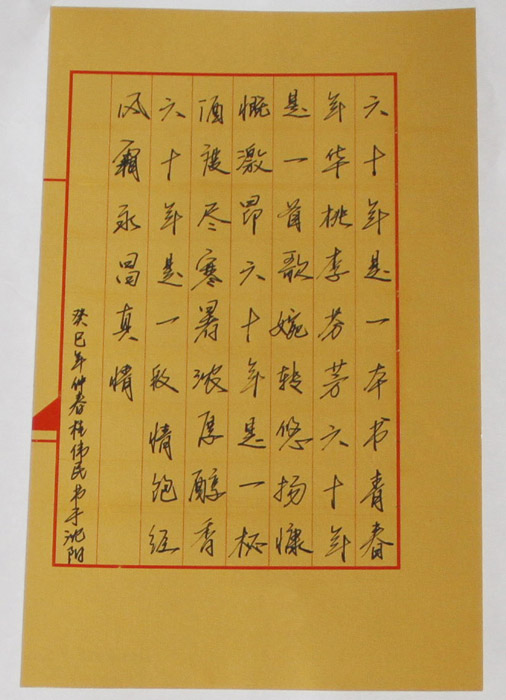 六十年是一本书青春
年华桃李芬芳六十年
是一首歌婉转悠扬慷
慨激昂六十年是一杯
酒尽寒暑浓厚醇香
六十年是一段情饱经
风霜永昌真情
癸巳年仲春伟民书于沈阳